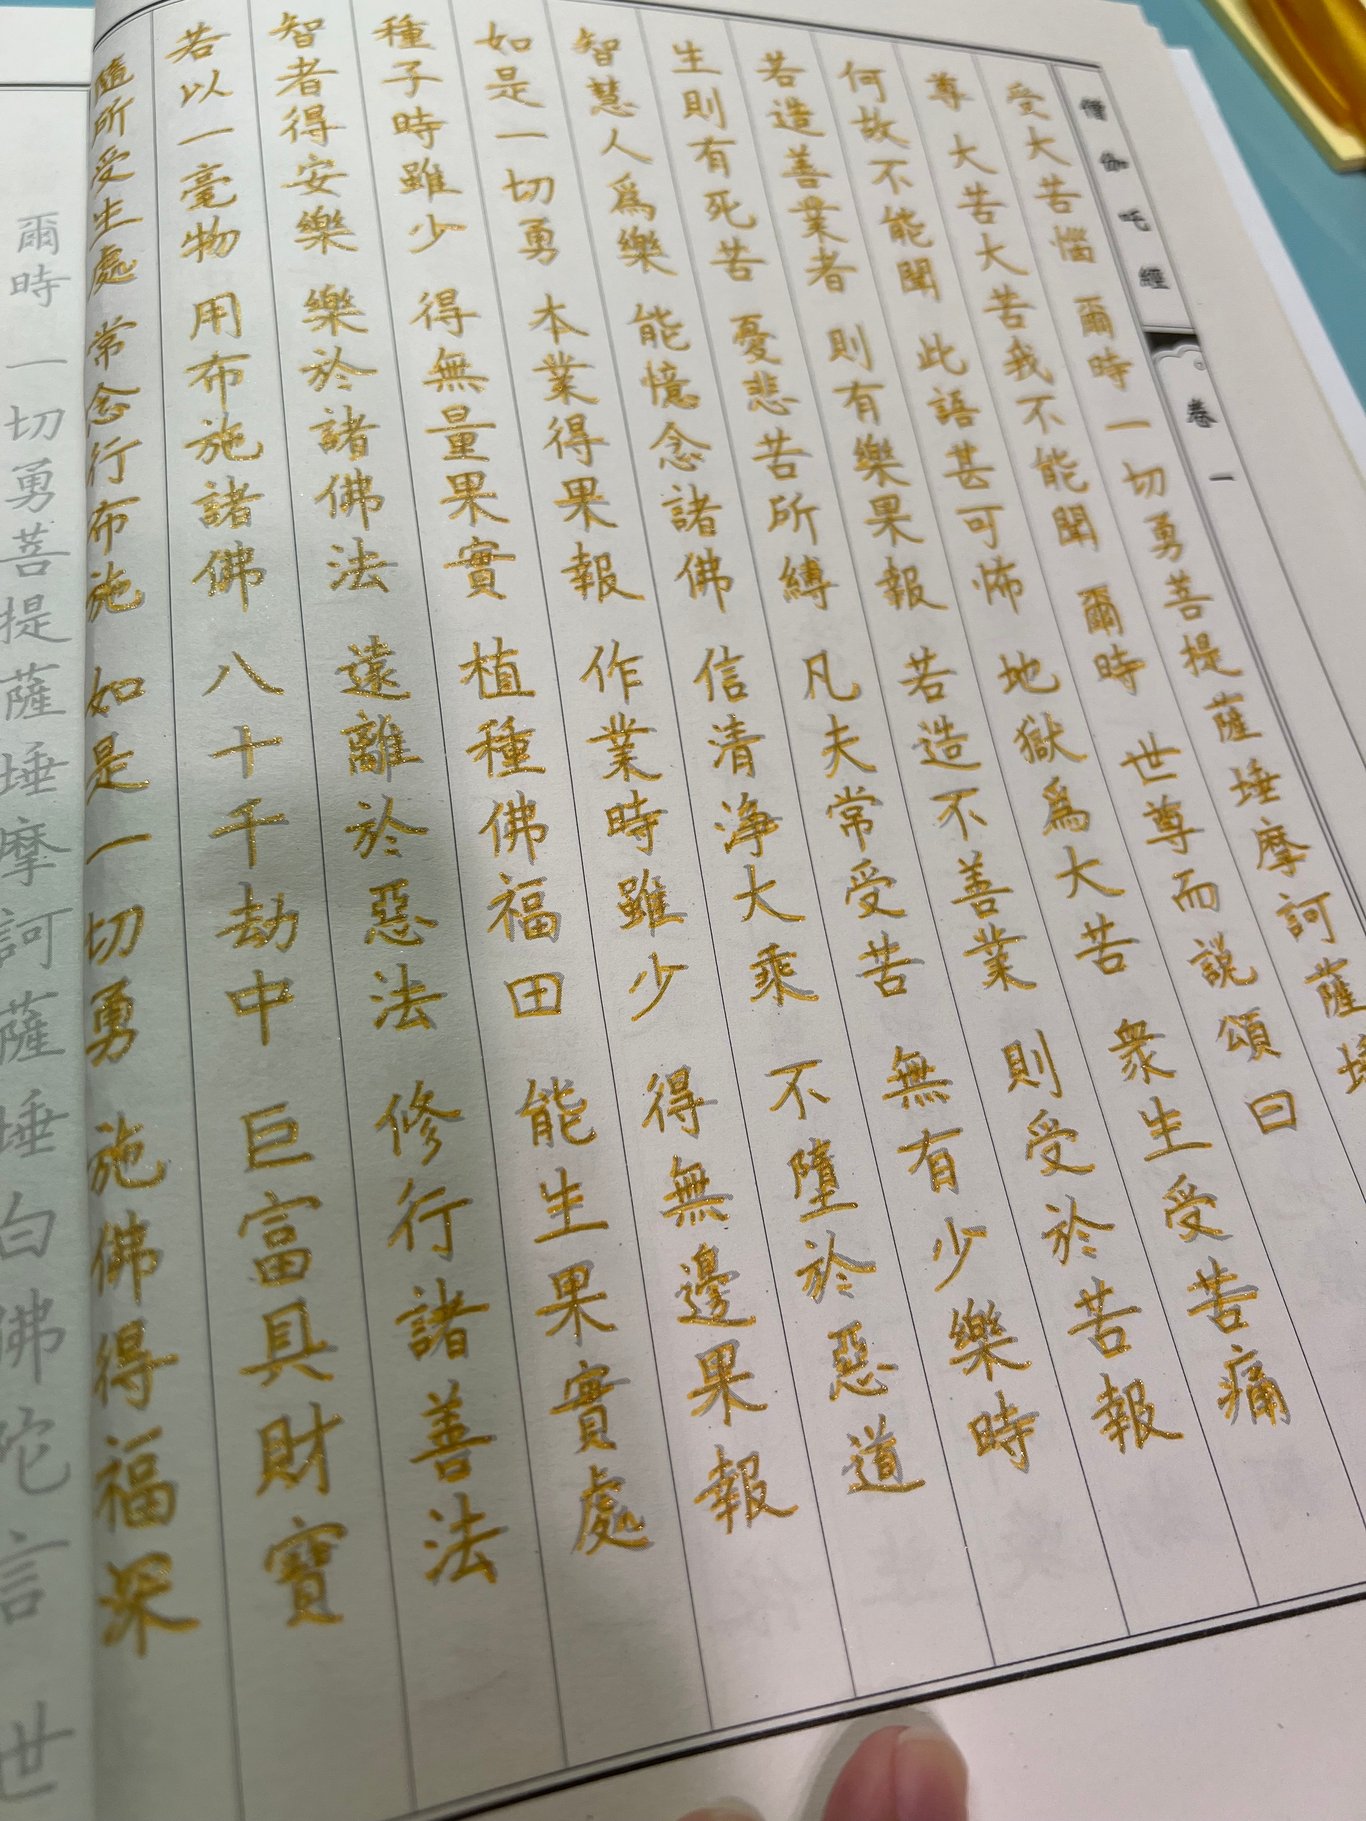 僧伽吒經 卷一
受大苦惱 爾時一切勇菩提薩埵摩訶薩埵
尊大苦大苦我不能聞 爾時世尊而說頌曰
何故不能聞 此語甚可怖 地獄爲大苦 衆生受苦痛
若造善業者 則有樂果報 若造不善業 則受於苦報
生則有死苦 憂悲苦所縛 凡夫常受苦 無有少樂時
智慧人爲樂 能憶念諸佛 信清淨大乘 不墮於惡道
如是一切勇 本業得果報 作業時雖少 得無邊果報
種子時雖少 得無量果實 植種佛福田 能生果實處
智者得安樂 樂於諸佛法 遠離於惡法 修行諸善法
若以一毫物 用布施諸佛 八十千劫中 巨富具財寶
隨所受生處 常念行布施 如是一切勇 施佛得福深
爾時一切勇菩提薩埵摩訶薩埵白佛陀言世